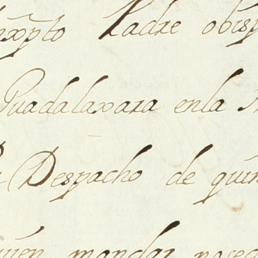 xpto Padre obisp
Guadalaxara enla
Despacho de quin
mandar